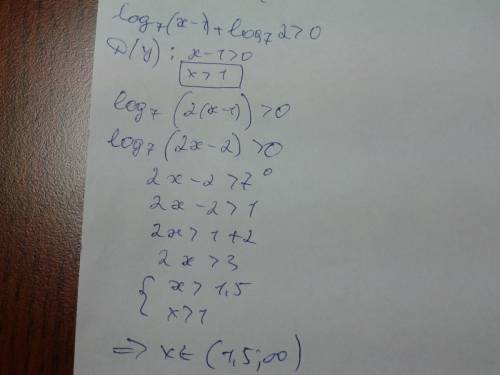 log₇(x-1)+log₇2>0
D(y): x-1>0
x>1
log₇(2(x-1))>0
log₇(2x-2)>0
2x-2>7⁰
2x-2>1
2x>1+2
2x>3
{ x>1,5
x>1
=> x∈(1,5;∞)